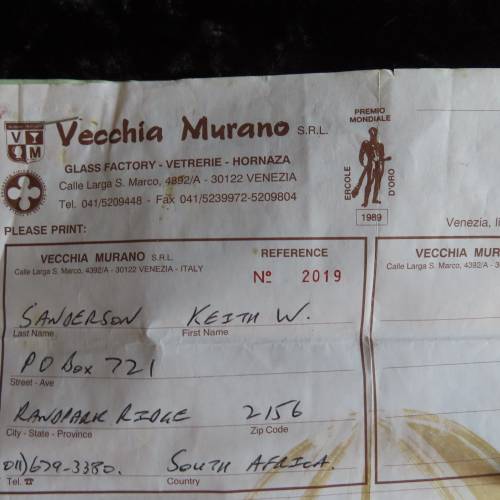 Vecchia Murano S.R.L.
PREMIO
MONDIALE
ERCOLE D'ORO
1989
GLASS FACTORY - VETRERIE - HORNAZA
Calle Larga S. Marco, 4892/A - 30122 VENEZIA
Tel. 041/5209448 - Fax 041/5239972-5209804
PLEASE PRINT:
Venezia, li
VECCHIA MURANO S.R.L.
Calle Larga S. Marco, 4392/A - 30122 VENEZIA - ITALY
REFERENCE
Nº 2019
SANDERSON KEITH W.
Last Name First Name
PO Box 721
Street - Ave
RANDPARK RIDGE 2156
City - State - Province Zip Code
011)679-3380. SOUTH AFRICA.
Tel. ☎ Country
VECCHIA MUR
Calle Larga S. Marco, 4392/A - 3